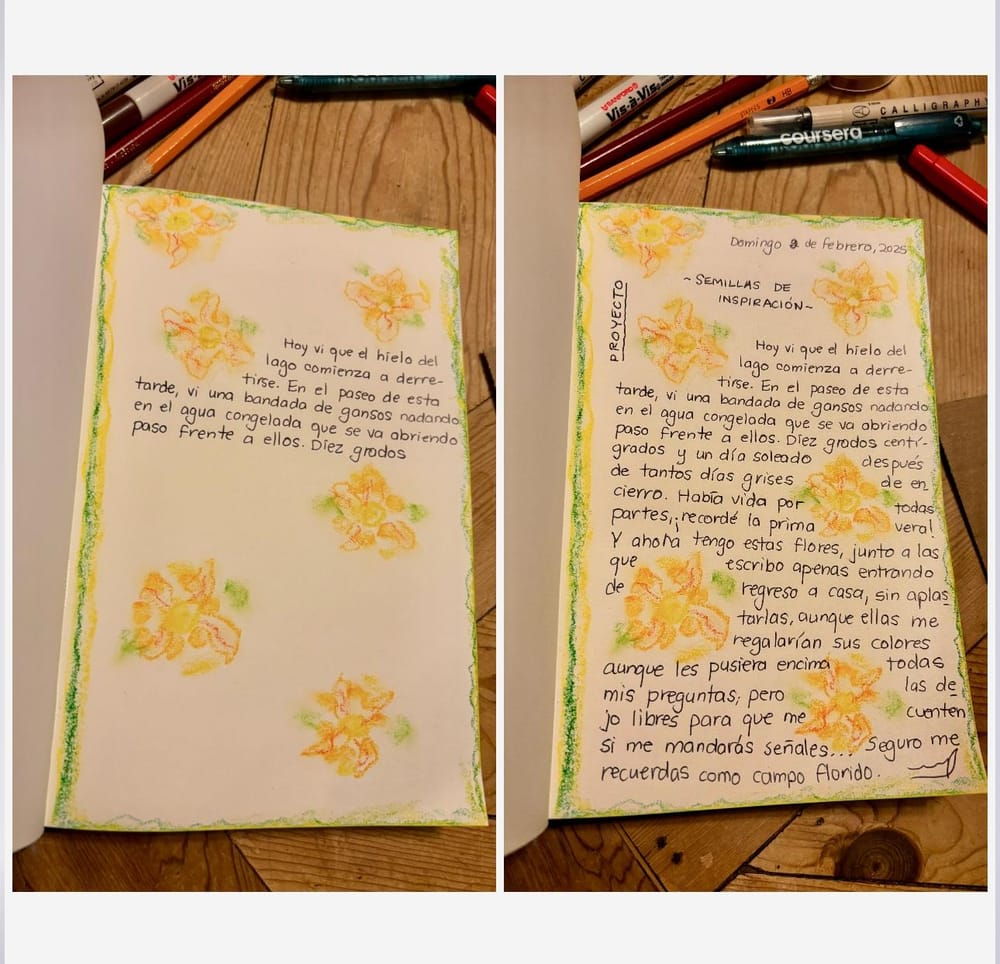 Vis-à-Vis
Hoy vi que el hielo del
lago comienza a derre-
tirse. En el paseo de esta
tarde, vi una bandada de gansos nadando
en el agua congelada que se va abriendo
paso frente a ellos. Diez grados
Vis-à-Vis
HB
CALLIGRAPHY
coursera
Domingo 2 de febrero, 2025
PROYECTO
~SEMILLAS DE
INSPIRACIÓN~
Hoy vi que el hielo del
lago comienza a derre-
tirse. En el paseo de esta
tarde, vi una bandada de gansos nadando
en el agua congelada que se va abriendo
paso frente a ellos. Diez grados centí-
grados y un día soleado después
de tantos días grises de en
cierro. Había vida por todas
partes, ¡recordé la prima vera!
Y ahora tengo estas flores, junto a las
que escribo apenas entrando
de regreso a casa, sin aplas
tarlas, aunque ellas me
regalarían sus colores
aunque les pusiera encima todas
mis preguntas; pero las de
jo libres para que me cuenten
si me mandarás señales... Seguro me
recuerdas como campo florido.